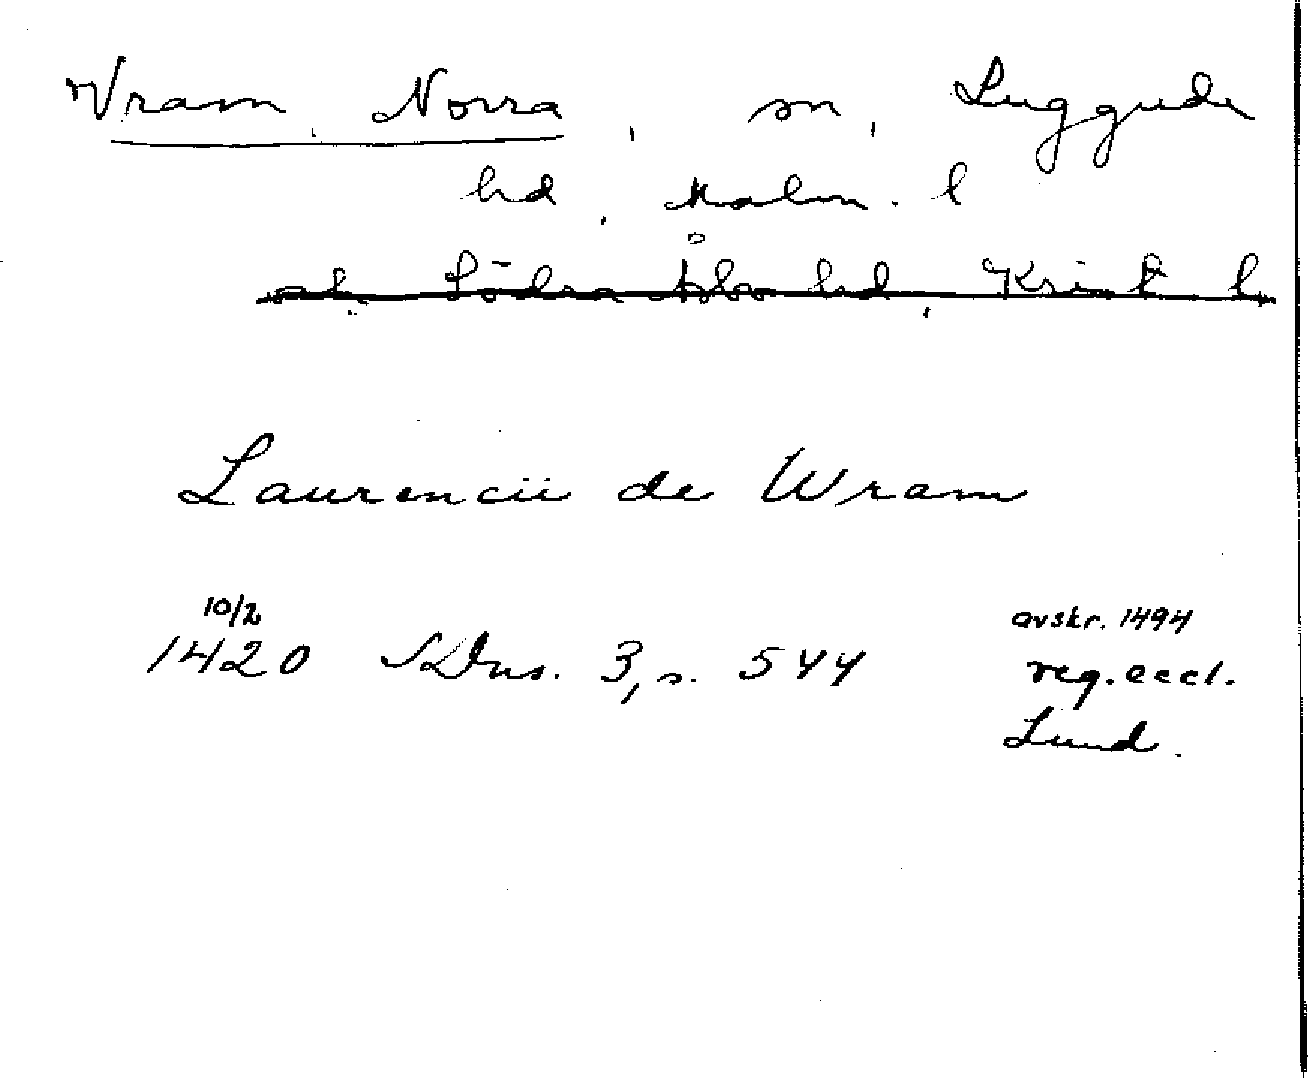 Vram, Norra, sn, Luggude
hd, Malm. l
och Södra Åsbo hd, Krist l
Laurencii de Wram
10/2
1420 SDns. 3, s. 544
avskr. 1494
reg. eccl.
Lund.